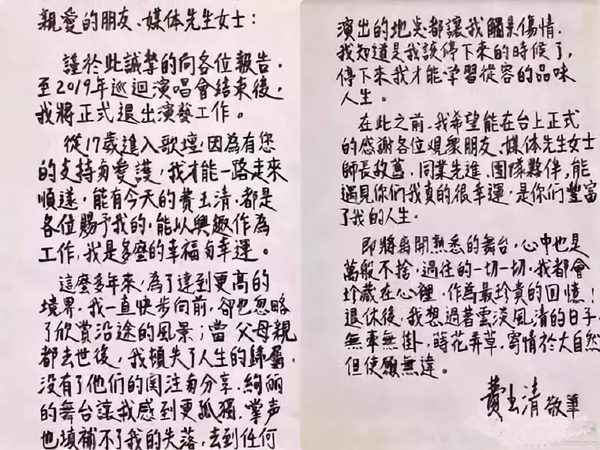 親愛的朋友、媒体先生女士：
謹於此誠摯的向各位報告，
至2019年巡迴演唱會結束後，
我將正式退出演藝工作。
從17歲進入歌壇，因為有您
的支持與愛護，我才能一路走來
順遂，能有今天的費玉清，都是
各位賜予我的，能以興趣作為
工作，我是多麼的幸福與幸運。
這麼多年來，為了達到更高的
境界，我一直快步向前，卻也忽略
了欣賞沿途的風景；當父母親
都去世後，我頓失了人生的歸屬，
没有了他們的関注與分享，絢麗
的舞台讓我感到更孤獨，掌声
也填補不了我的失落，去到任何
演出的地点都讓我觸景傷情，
我知道是我該停下來的時候了，
停下來我才能学習從容的品味
人生。
在此之前，我希望能在台上正式
的感谢各位觀衆朋友、媒体先生女士
師長故舊、同業先進、團隊夥伴，能
遇見你們我真的很幸運，是你們豐富
了我的人生。
即將離開熟悉的舞台，心中也是
萬般不捨，過往的一切一切，我都會
珍藏在心裡，作為最珍貴的回憶！
退休後，我想過著雲淡風清的日子，
無牽無掛，蒔花弄草，寄情於大自然
但使願無違。
費玉清 敬筆